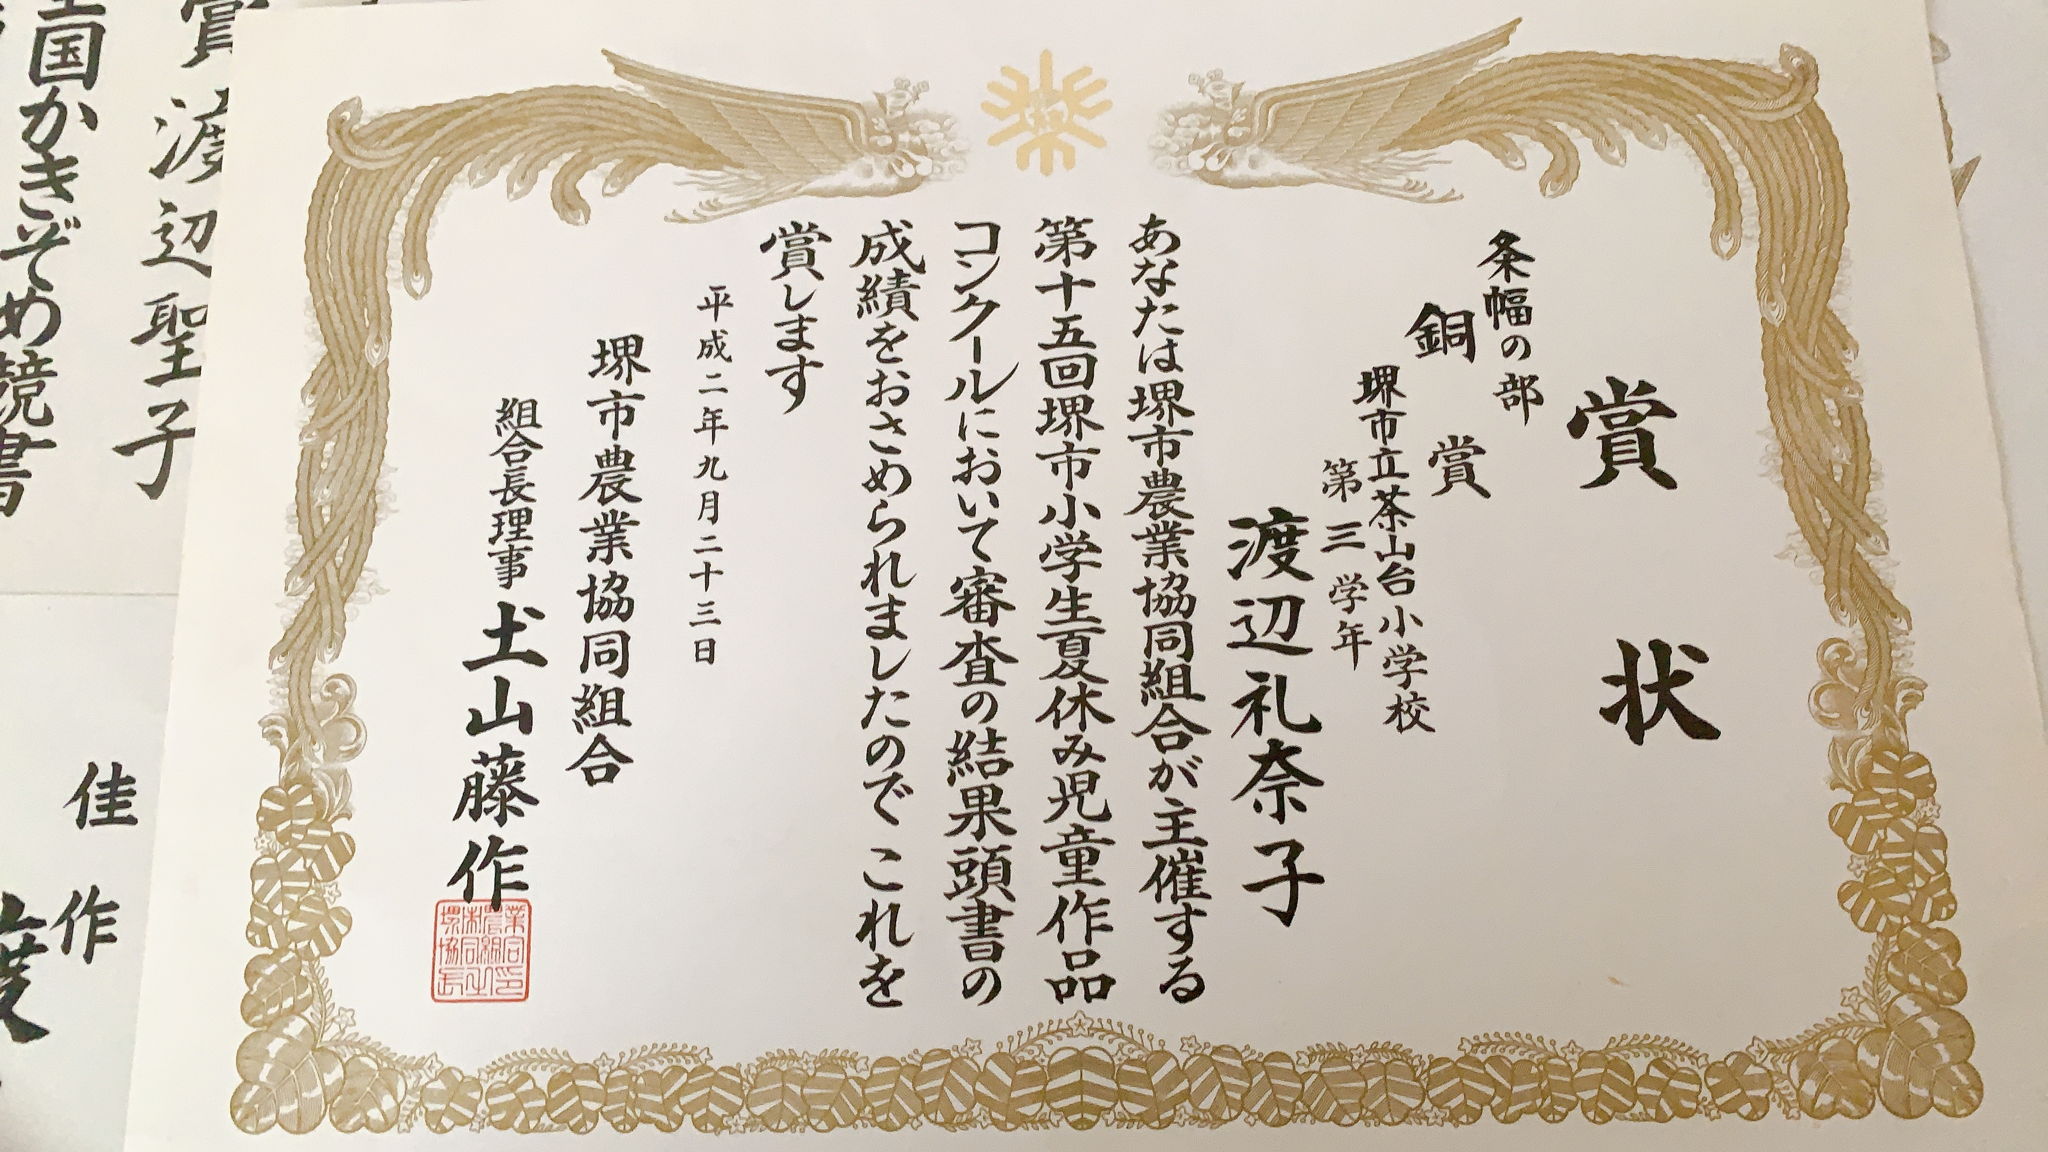 賞状
条幅の部
銅賞
堺市立茶山台小学校
第三学年
渡辺礼奈子
あなたは堺市農業協同組合が主催する
第十五回堺市小学生夏休み児童作品
コンクールにおいて審査の結果頭書の
成績をおさめられましたので これを
賞します
平成二年九月二十三日
堺市農業協同組合
組合長理事 土山藤作
賞
渡辺聖子
国かきぞめ競書
佳作